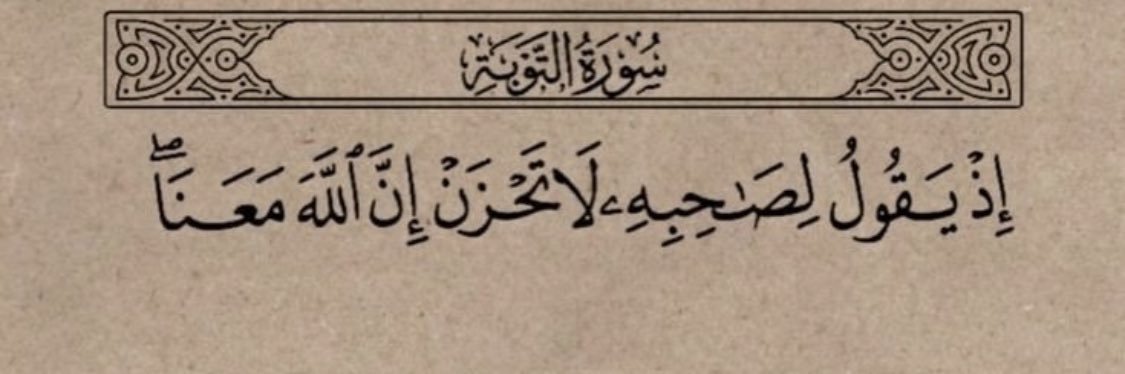 سُورَةُ التَّوْبَةِ
إِذْ يَقُولُ لِصَـٰحِبِهِۦ لَا تَحْزَنْ إِنَّ ٱللَّهَ مَعَنَاۖ